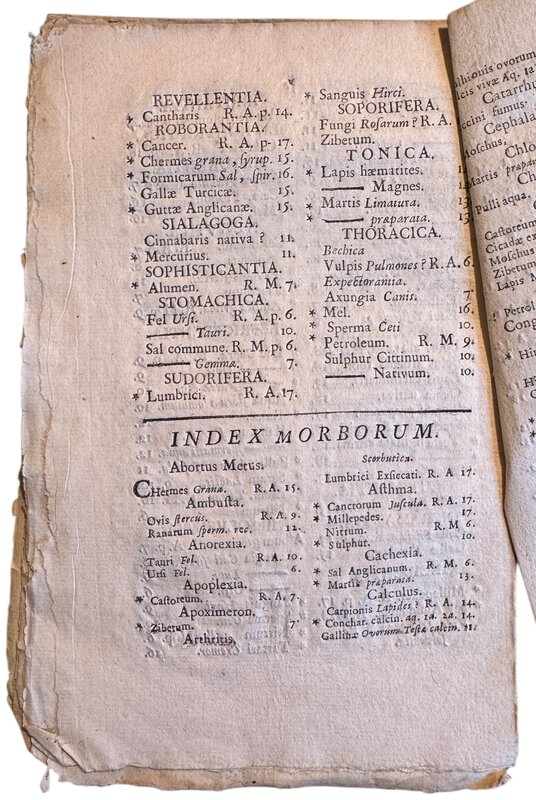 REVELLENTIA.
* Cantharis R. A. p. 14.
ROBORANTIA.
* Cancer. R. A. p. 17.
* Chermes grana, syrup. 15.
* Formicarum Sal, spir. 16.
Gallæ Turcicæ. 15.
* Guttæ Anglicanæ. 15.
SIALAGOGA.
Cinnabaris nativa ? 11.
* Mercurius. 11.
SOPHISTICANTIA.
* Alumen. R. M. 7.
STOMACHICA.
Fel Ursi. R. A. p. 6.
—— Tauri. 10.
Sal commune. R. M. p. 6.
—— Gemmæ. 7.
SUDORIFERA.
* Lumbrici. R. A. 17.
* Sanguis Hirci.
SOPORIFERA.
Fungi Rosarum ? R. A.
Zibetum.
TONICA.
* Lapis hæmatites.
—— Magnes.
* Martis Limatura.
* —— præparata. 13.
THORACICA.
Bechica
Vulpis Pulmones ? R. A. 6.
Expectorantia.
Axungia Canis. 7
* Mel. 16.
* Sperma Ceti 10.
* Petroleum. R. M. 9.
Sulphur Cittinum. 10.
—— Nativum. 10.
INDEX MORBORUM.
Abortus Metus.
CHermes Grana. R. A. 15.
Ambusta.
Ovis stercus. R. A. 9.
Ranarum sperm. rec. 12.
Anorexia.
Tauri Fel. R. A. 10.
Ursi Fel. 6.
Apoplexia.
* Castoreum. R. A. 7.
Apoximeron.
* Zibetum. 7.
Arthritis,
Scorbutica.
Lumbrici Exsiccati. R. A 17.
Asthma.
* Cancrorum Juscula. R. A. 17.
* Millepedes. 17.
Nitrum. R. M 6.
* Sulphur. 10.
Cachexia.
* Sal Anglicanum. R. M. 6.
* Martis præparata. 13.
Calculus.
Carpionis Lapides ? R. A. 14.
* Conchar. calcin. aq. 1a. 2a. 14.
Gallinæ Ovorum Testæ calcin. 11.
ovorum
vivæ Aq. 1a
Catarrh
fumus.
Cephala
Moschus,
Chlo
Martis præpar
Pulli aqua,
Castoreum
Cicadæ ex
Moschus
Zibetum
Lapis M
Petrol
Cong
* Hir